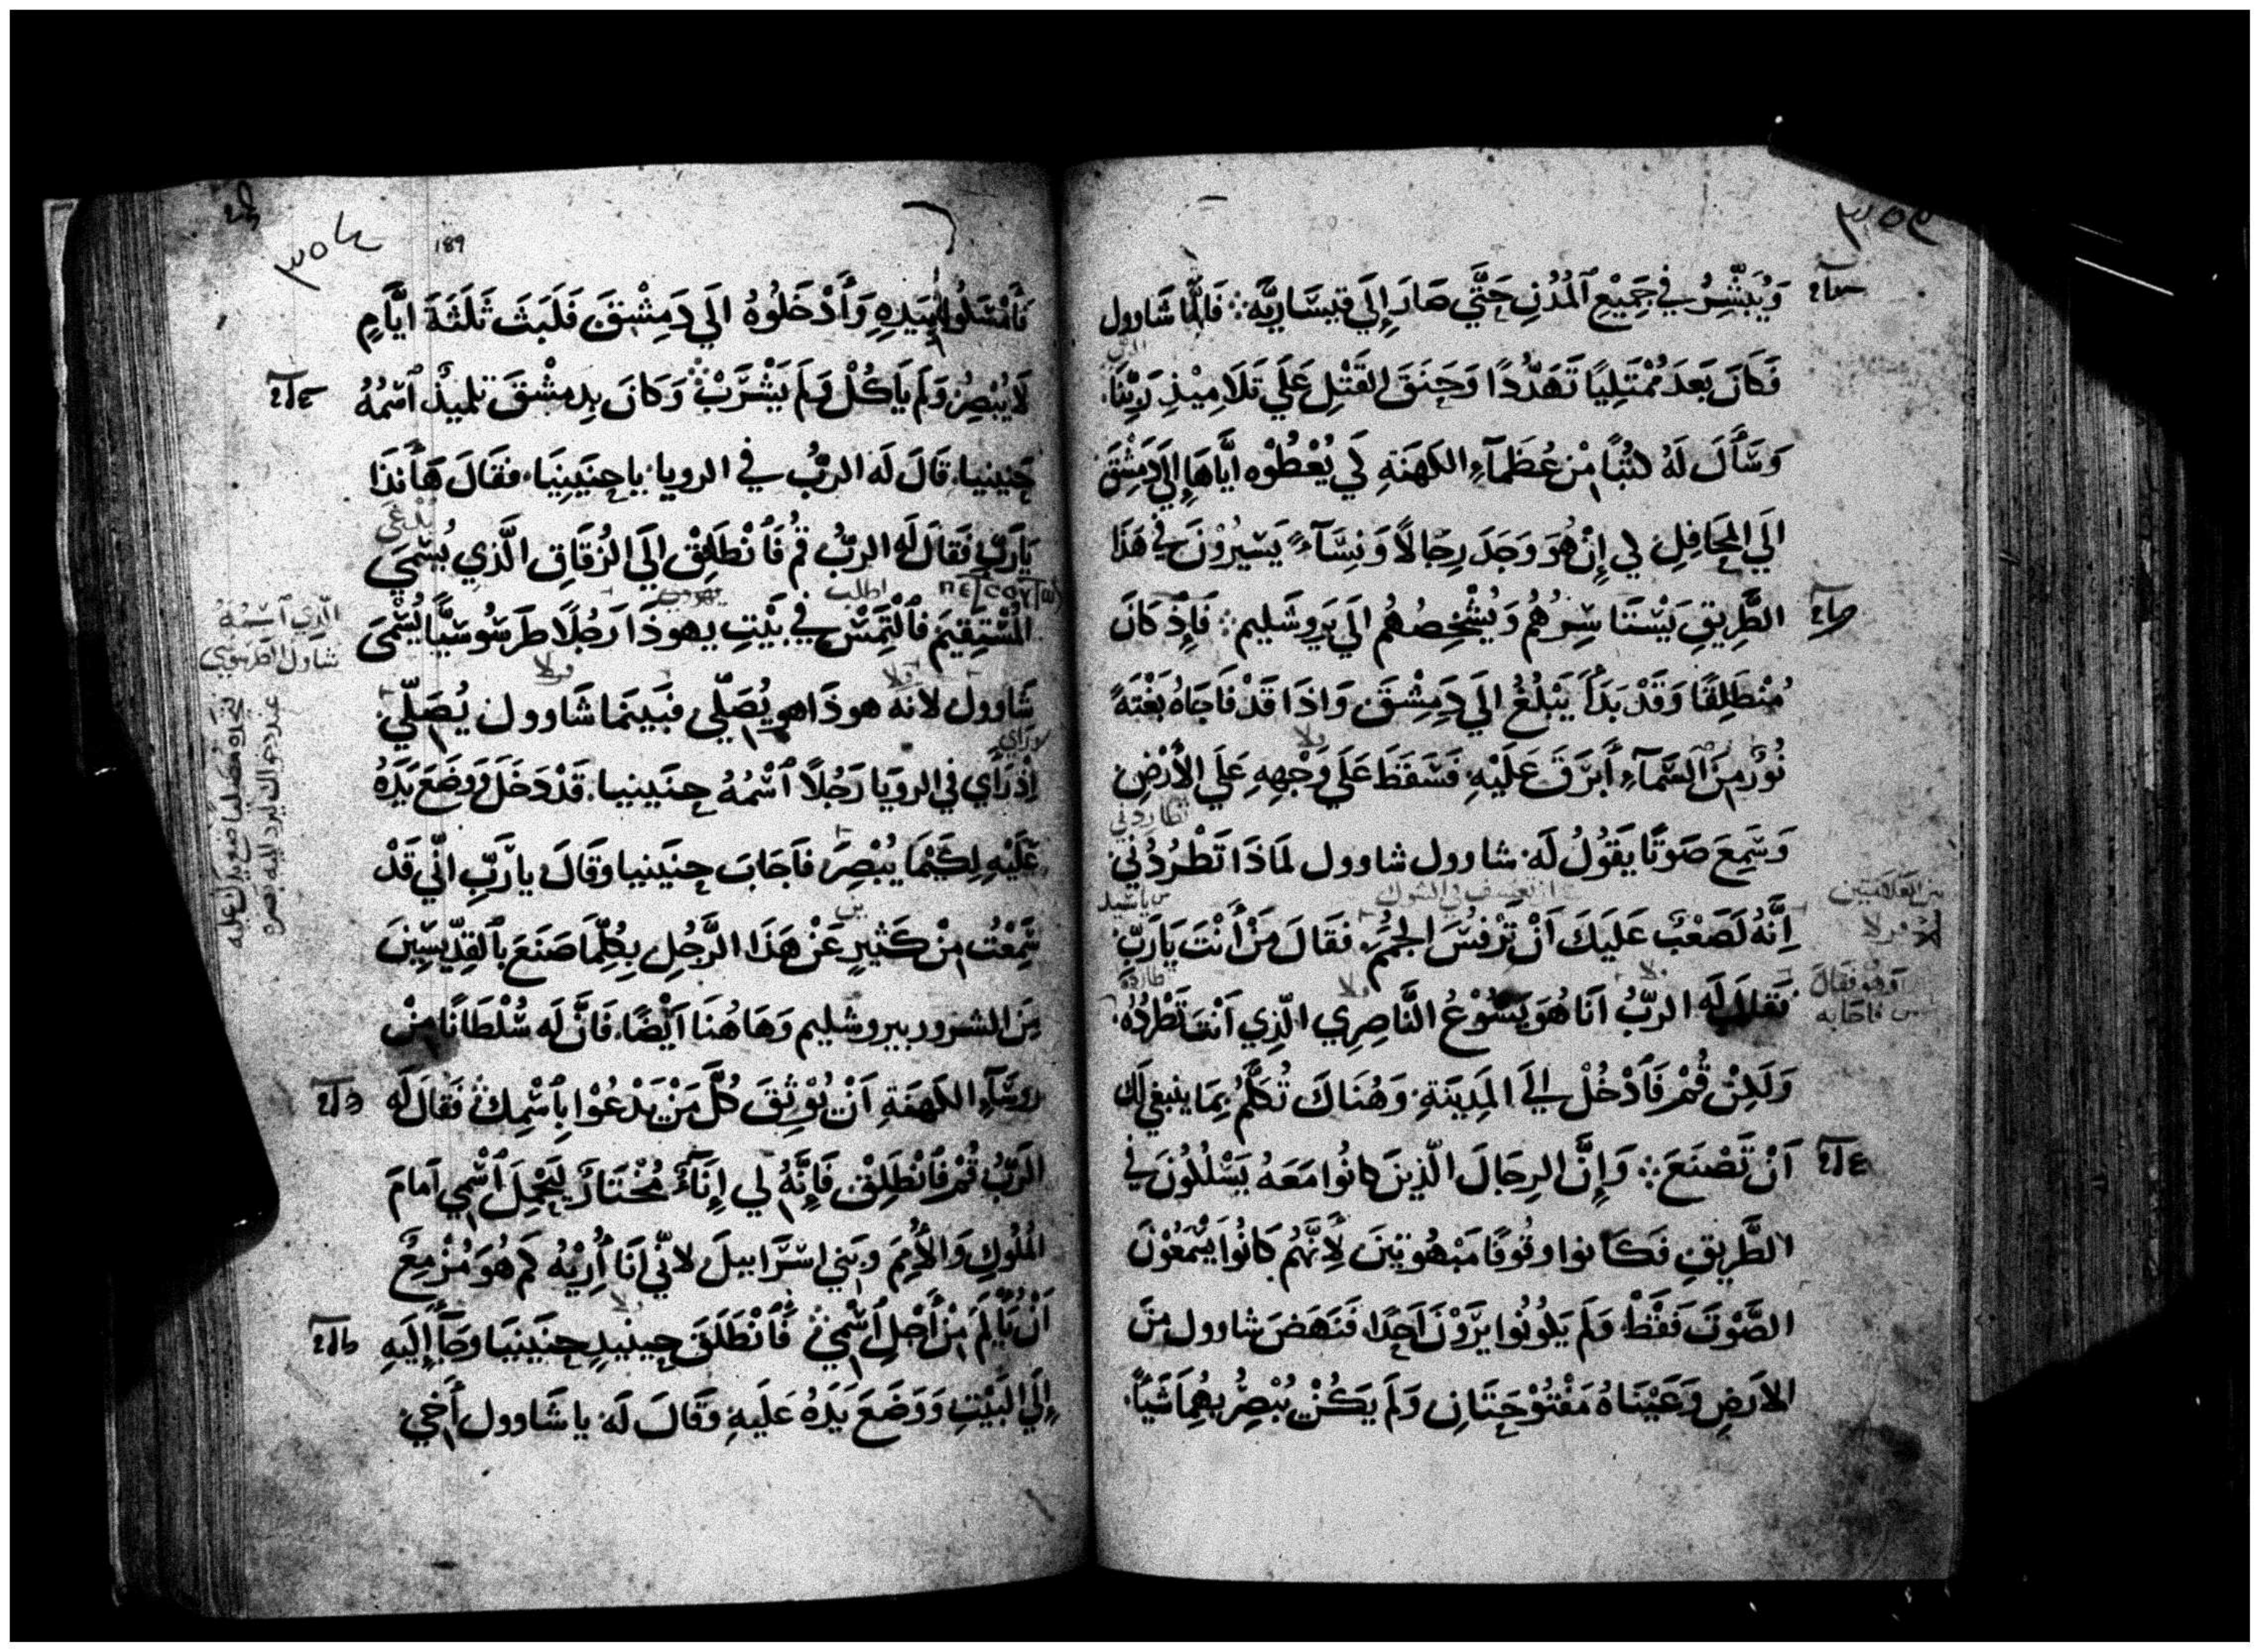 وَيُبَشِّرُ في جَمِيْعِ ٱلمُدُنِ حَتَّي صَارَ إِلَي قيسَاريَّه ܀ فَامَّا شَاوول
فَكَانَ بَعدَ مُمْتَلِيًا تَهَدُّدًا وَحَنَقَ القَتْلِ عَلَي تَلَامِيْذِ رَبِّنَا
وَسَأَلَ لَهُ كتُبًا مِنْ عُظَمَآءِ الكَهَنَةِ كَي يُعْطُوْه ايَّاهَا إِلَي دِمَشْقَ
الَي المَحَافِلِ لي إِنْ هُوَ وَجَدَ رِجَالاً وَنِسَآءً يَسَيرُوْنَ في هَذَا
الطَّرِيقِ يَسْتَاسِرُهُم وَيُشْخِصُهُم الَي يَروشَليم ܀ فَإِذْ كَانَ
مُنْطَلِقًا وَقَدْ بَدَأَ يَبْلُغُ الَي دِمِشْقَ وَاذَا قَدْ فَاجَاهُ بَغْتَةً
نُوْرٌ مِنَ ٱلسَّمآءِ أَبرَقَ عَلَيْهِ فَسَقَطَ عَلَي وَجْهِهِ عَلَي الأَرْضِ
وَسَمِعَ صَوتًا يَقُوْلُ لَه شاوول شاوول لمَاذَا تَطْرُدُنِي
إِنَّهُ لَصَعْبٌ عَلَيكَ اَنْ تَرْفُسَ فقَالَ مَنْ أَنْتَ يَارَبّ
فَقَالَ لَه الربُّ انَا هُوَ يَسُوْعُ النَّاصِرِي الّذِي اَنْتَ تَطْرُدُهُ
وَلَكِنْ قُمْ فَٱدْخُلْ إلَي المَدِينَةِ وَهُنَاكَ تُكَلَّمُ بِمَا ينبغي لَكَ
اَنْ تَصْنَعَ ܀ وَإِنَّ الرِجَالَ الّذِينَ كانُوا مَعَهُ يَسْلُكُونَ في
الطَّرِيقِ فَكَانوا وقُوفًا مَبْهُوتِينَ لأَنَّهُم كَانُوا يَسْمَعُوْنَ
الصَّوْتَ فَقَطْ وَلَم يَكُونُوا يَرَوْنَ اَحَدًا فَنَهَضَ شاوول مِنَ
الارَضِ وَعَيْنَاهُ مَفْتُوْحَتَانِ وَلَم يَكُنْ يُبْصِرُ بهُمِا شَيًا
٣٥٤
189
فَأَمْسَكُوا بيَدِهِ وَأَدْخَلُوهُ الَي دَمِشْقَ فَلَبَثَ ثَلَثَةَ ايَّامٍ
لَا يُبْصِرُ وَلَم يَاكُلْ وَلَم يَشْرَبْ ܀ وَكَانَ بِدِمشْقَ تلميذٌ ٱسْمُهُ
حَنَينيا قَالَ لَه الرَبُّ في الرويا ياحنَينِيَا فقَالَ هَأَنذَا
يَارَبّ فَقَالَ لَه الربُّ قُم فَٱنْطَلِقْ الَي الزُقَاقِ الَّذِي يُسْمَي
المُسْتَقِيمَ فَٱلْتَمِسْ في بَيْتِ يهوذَا رَجُلاً طَرسُوسيًّا يُسْمَي
شَاوول لانَه هوذَا هو يُصَلّي فبَينمَا شَاوول يُصَلّي
إِذْ رَأي في الرويَا رَجُلاً ٱسْمُهُ حنَينيا قَدْ دَخَلَ وَوَضَعَ يَدَهُ
عَلَيْهِ لِكَيْمَا يُبْصِرَ فاَجَابَ حنَينيا وقَالَ يارَبّ انّي قَدْ
سَمِعْتُ مِنْ كَثيرٍ عَنْ هَذَا الرَّجُلِ بِكُلِّمَا صَنَعَ بٱلقِدّيسِينَ
مِنَ الشرور بيروشليم وَهَاهُنَا اَيْضًا فَانَّ لَه سُلْطَانًا مِنْ
روسَآءِ الكَهَنَةِ اَنْ يُوْثِقَ كُلَّ مَنْ يَدْعُوْا بِٱسْمِكَ ܀ فَقَالَ لَه
الرَبُّ قُمْ فَٱنْطَلِقْ فَإِنَّهُ لي إِنَآءٌ مُخْتَارٌ لِيَحْمِلَ ٱسْمِي اَمامَ
المُلُوكِ وَالأُمَمِ وبَني اسْرَاييلَ لانّي اَنَا أُرِيْهُ كَم هُوَ مُزْمِعٌ
اَنْ يَألَم مِنْ أَجْلِ ٱسْمِي ܀ فَٱنْطَلَقَ حِينيذٍ حنَينيا وجَآ إِلَيهِ
إِلَي البَيْتِ وَوَضَعَ يَدَهُ عَلَيهِ وَقَالَ لَه يا شَاوول أَخي
الّذي ٱسْمُهُ
شاوَل الطرسوسي